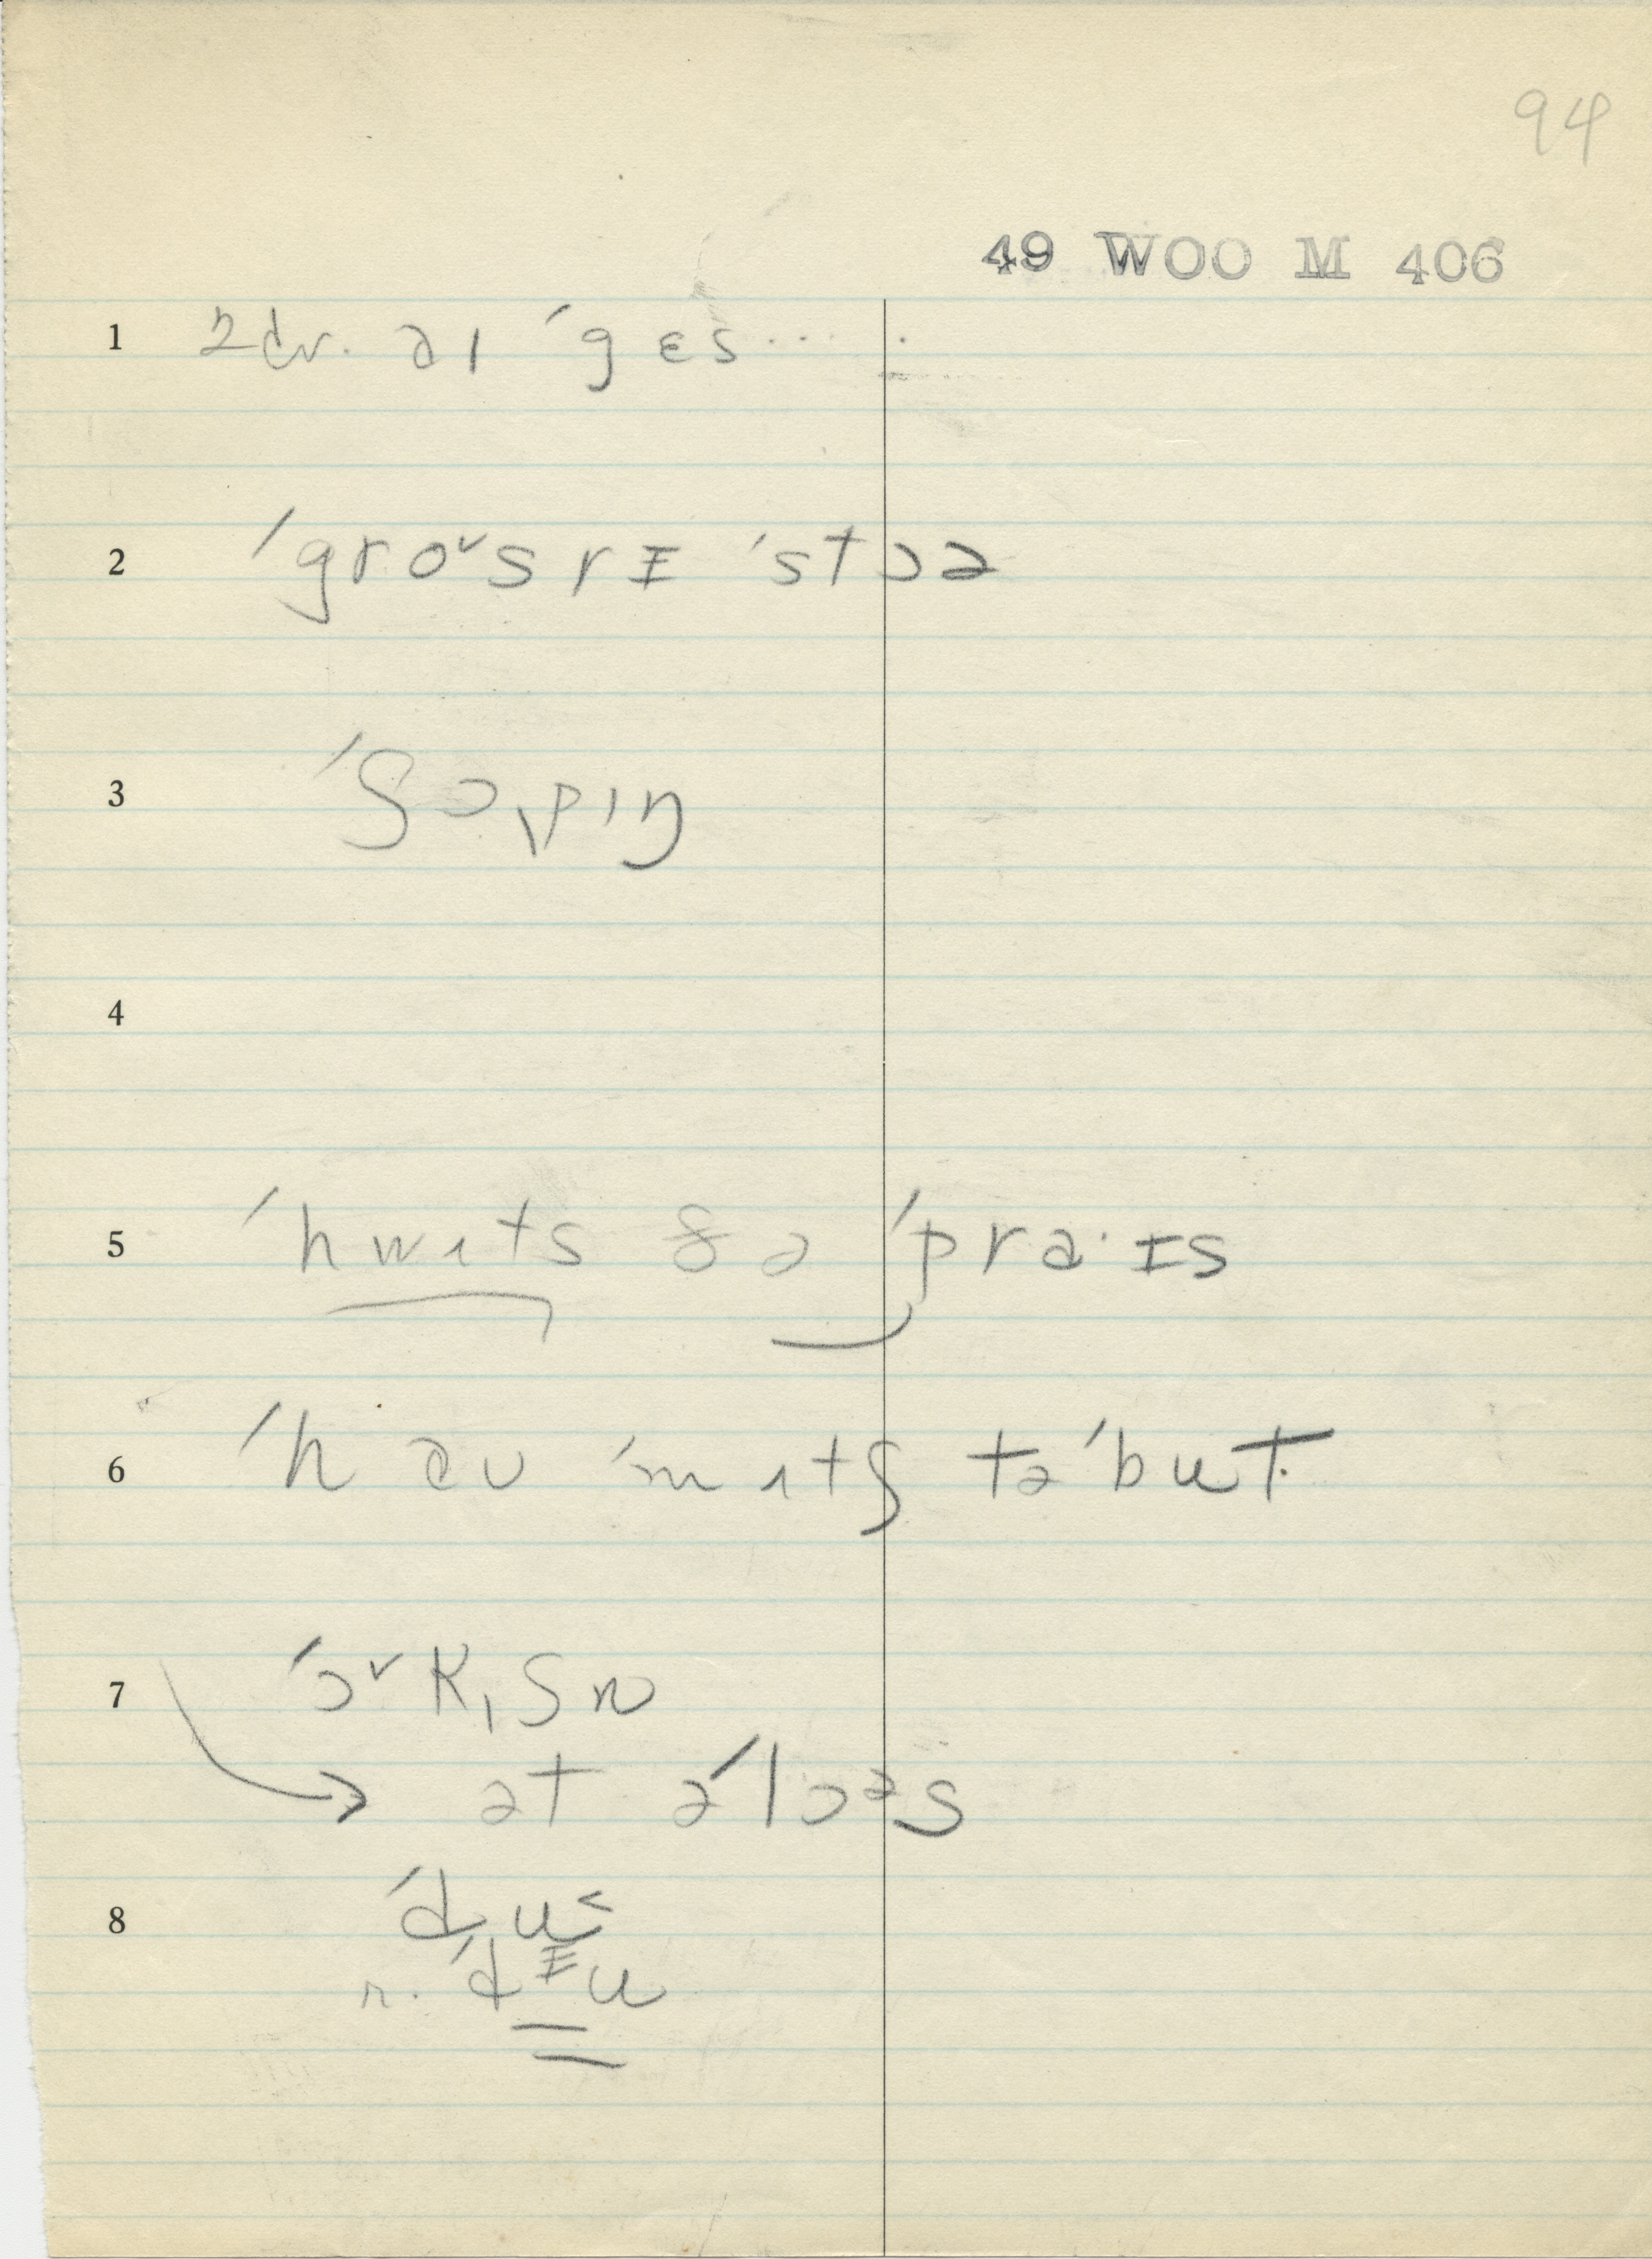 94
49 WOO M 406
1 ˈgɛs....
2 ˈgroᵛsrɪ ˈstɔə
3 ˈʃɔpɪŋ
4
5 ˈhwɪts ðə ˈpra·ɪs
6 ˈhau ˈmɪtʃ təˈbut
7 ˈɔᵛkʃn
→ ət əˈlɔəs
8 ˈdu
r. ˈdɪu